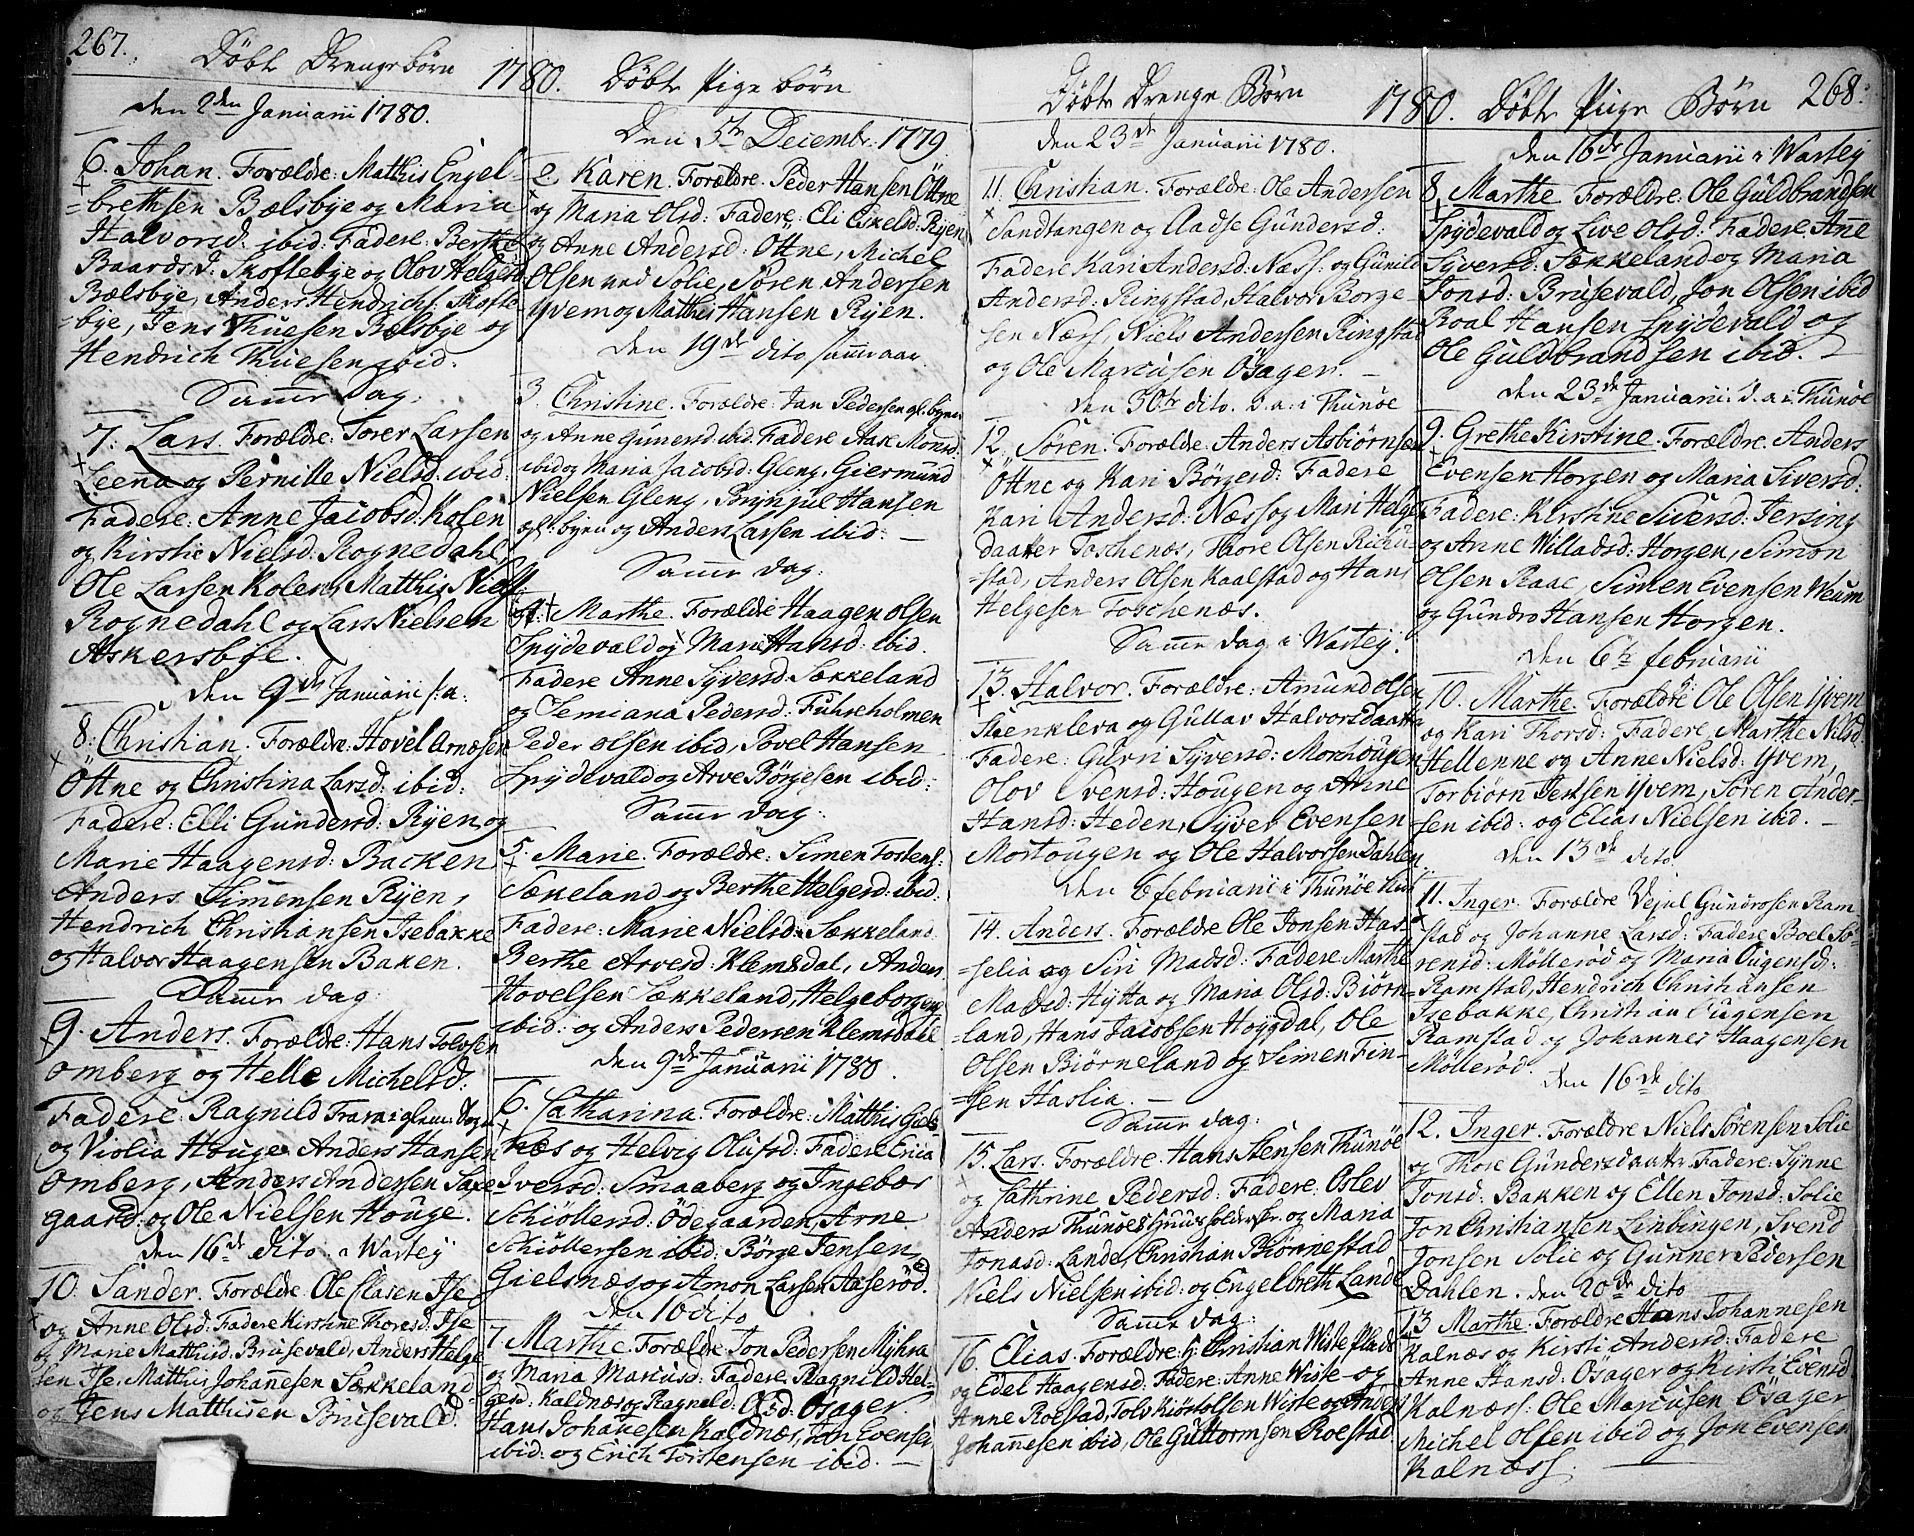 267.
Döbte Drengebörn
den 2den Januarii 1780.
6. Johan. Forældre: Mathis Engel-
=brethsen Bælsbye og Maria
Halvorsd: ibid: Fadere: Berthe
Baardsd: Skoftebye og Olov Helgesd:
Bælsbye, Anders Hendrichs: Skofte
=bye, Jens Thuesen Bælsbye og
Hendrich Thuesen ibid.
Samme dag.
7. Lars. Forældre: Sören Larsen
Leena og Pernille Nielsd: ibid:
Fadere: Anne Jacobsd: Kolen
og Kirstie Nielsd: Rognedahl,
Ole Larsen Kolen, Matthis Niels:
Rognedahl og Lars Nielsen
Askersböe.
den 9de Januarii s: a:
8. Christian. Forældre: Hovel Arnesen
Öttne og Christina Larsd: ibid:
Fadere: Elli Gundersd: Ryen og
Marie Haagensd: Backen
Anders Simensen Ryen,
Hendrich Christiansen Isebakke
og Halvor Haagensen Baken.
Samme dag:
9. Anders. Forældre: Hans Tolvsen
Omberg og Helle Michelsd:
Fadere: Ragnild
og Violia Houge Anders Hansen
Omberg, Anders Andersen Saxe
gaard, og Ole Nielsen Houge.
den 16de dito i Warteÿ
10. Sander. Forældre. Ole Clasen Ise
og Anne Olsd: Fadere Kirstine Thoresd: Ise
og Marie Matthisd: Brusevald, Anders Helge
sen Ise. Matthis Johannesen Sækkeland
og Jens Matthisen Brusevald.
1780. Döbte Pige börn
Den 5te Decembr: 1779
2. Karen. Forældre. Peder Hansen Öttne
og Maria Olsd: Fadere: Eli Eskelsd: Ryen
og Anne Andersd: Öttne, Michel
Olsen ved Solie, Sören Andersen
Yvem og Matthis Hansen Ryen.
den 19de dito samme aar
3. Christine. Forældre: Jan Pedersen gl: byen
og Anne Gunersd: ibid: Fadere Aase Monsd:
ibid og Maria Jacobsd: Gleng, Giermund
Nielsen Gleng, Brynjul Hansen
gl: byen og Anders Larsen ibid:
Samme dag:
4. Marthe. Forældre Haagen Olsen
Spydevald og Mari Hansd: ibid.
Fadere Anne Syversd: Sækkeland
og Semiana Pedersd: Fuhreholmen
Peder Olsen ibid, Povel Hansen
Spydevald og Arve Börgesen ibid:
Samme dag:
5. Marie. Forældre: Simen Tostens:
Sækeland og Berthe Helgesd: ibid:
Fadere: Marie Nielsd: Sækkeland
Berthe Arvesd: Klemsdal, Anders
Hovelsen Sækkeland, Helge Borgen
ibid: og Anders Pedersen Klemsdahl
den 9de Januarii 1780.
6. Catharina. Forældre: Matthis Giels
næs og Helvig Olufsd: Fadere Erica
Iversd: Smaaberg og Ingebor
Schiöllersd: Ödegaarden, Arne
Schiöllersen ibid: Börge Jensen
Gielsnæs og Amon Larsen Aaseröd.
den 10 dito
7. Marthe. Forældre Jon Pedersen Myhra
og Maria Marcusd: Fadere, Ragnild Hel-
gesd: Kaldnæs og Ragneld: Olsd: Ösager
Hans Johannesen Kaldnæs, Jon Evensen
ibid: og Erich Torstensen ibid.
Döbte Drenge Börn
den 23de Januarii 1780.
11. Christian. Forældre: Ole Andersen
Sandtangen og Aadse Gundersd:
Fadere Kari Andersd: Næss: og Gunild
Andersd: Ringstad, Halvor Borge-
sen Næss, Niels Andersen Ringstad
og Ole Marcusen Ösager.
den 30te dito. s. a. i Thunöe
12. Sören. Forældre: Anders Asbiörnsen
Öttne og Kari Börgesd: Fadere
Kari Andersd: Næss og Mari Helge
daatter Toschenæs, Thore Olsen Richu-
=stad, Anders Olsen Kaalstad og Hans
Helgesen Toschenæs.
Samme dag i Warteÿ.
13. Halvor. Forældre: Amund Olsen
Steenkleva og Gullav Halvorsdaatter
Fadere: Guri Syversd: Morchougen
Olov Svensd: Hougen og Anne
Hansd: Heden, Syver Evensen
Mortougen og Ole Halvorsen Dahlen
den 6 februarii i Thunöe
14. Anders. Forældre Ole Jonsen Has-
=selia og Siri Madsd: Fadere: Marthe
Madsd: Hytta og Maria Olsd: Biörn-
=land, Hans Jacobsen Höygdal, Ole
Olsen Biörneland og Simen Fin-
=sen Haslia.
Samme dag:
15. Lars. Forældre. Hans Stensen Thunöe
og Cathrine Pedersd: Fadere. Oslev
Anders Thunöe og Maria
Jonasd: Lande, Christian Biönnestad
Niels Nielsen ibid: og Engelbreth Lande
Samme dag:
16. Elias. Forældre: Christian Wiste
og Edel Haagensd: Fadere: Anne Wiste og
Anne Roestad, Tolv Kiöstolsen Wiste og Anders
Johannesen ibid, Ole Guttormsen Roestad
1780. Döbte Piige Börn 268.
den 16de Januarii i Warteÿ
8. Marthe Forældre: Ole Guldbrandsen
Spydevald og Live Olsd: Fadere. Anne
Syversd: Sækkeland og Maria
Jonsd: Brusevald, Jon Olsen ibid
Roal Hansen Spydevald og
Ole Guldbrandsen ibid.
den 23de Januarii. s. a. i Thunöe
9. Grethe Kirstine. Forældre. Anders
Evensen Horgen og Maria Siversd:
Fadere: Kirstine Siversd: Tersing
og Anne Willadsd: Horgen, Simon
Olsen Raae, Simen Evensen Weum
og Gundro Hansen Horgen.
den 6te februarii
10. Marthe. Forældre Ole Olsen Yvem
og Kari Thorsd: Fadere, Marthe Nilsd
Hellenne og Anne Nielsd: Yvem,
Torbiörn Jensen Yvem, Sören Ander-
sen ibid: og Elias Nielsen ibid.
den 13de dito
11. Inger. Forældre Vejul Gundrosen Ram-
stad og Johanne Larsd: Fadere Boel Sö-
rensd: Mölleröd og Maria Ougensd:
Ramstad, Hendrich Christiansen
Isebakke, Christian Ougensen
Ramstad og Johannes Haagensen
Mölleröd.
den 16de dito
12. Inger. Forældre Niels Sörensen Solie
og Thore Gundersdaatter Fadere. Synne
Jonsd: Bakken og Ellen Jonsd: Solie
Jon Christiansen Linbingen, Svend
Jonsen Solie og Gunner Pedersen
Dahlen. den 20de dito
13 Marthe. Forældre Hans Johannesen
Kalnæs og Kirsti Andersd: Fadere
Anne Hansd: Ösager og Kirsti Evensd
Kalnæss: Ole Marcusen Ösager
Michel Olsen ibid og Jon Evensen
Kalnæss.